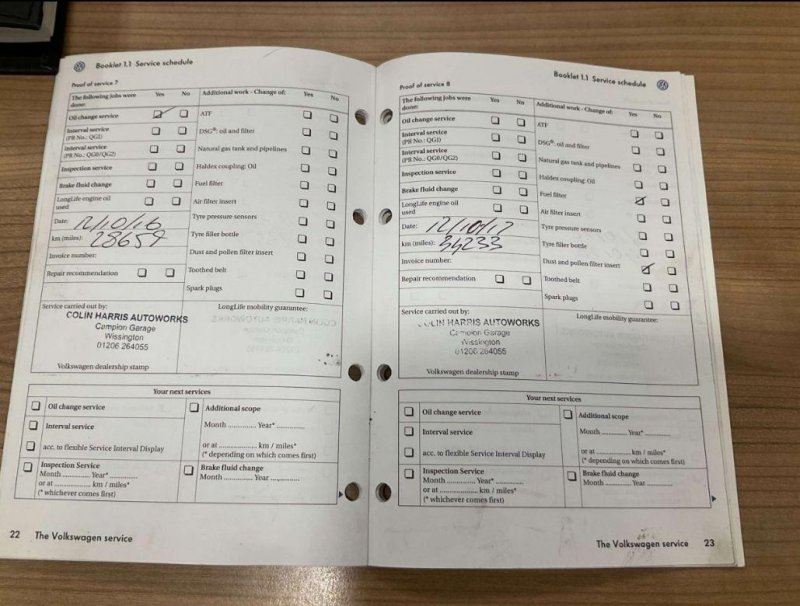 Booklet 1.1 Service schedule
Proof of service 7
The following jobs were done: Yes No
Additional work - Change of: Yes No
Oil change service
ATF
Interval service
(PR No.: QG1)
DSG®: oil and filter
Interval service
(PR No.: QG0/QG2)
Natural gas tank and pipelines
Inspection service
Haldex coupling: Oil
Brake fluid change
Fuel filter
LongLife engine oil used
Air filter insert
Date: 12/10/16
Tyre pressure sensors
km (miles): 28659
Tyre filler bottle
Invoice number:
Dust and pollen filter insert
Repair recommendation
Toothed belt
Spark plugs
Service carried out by:
LongLife mobility guarantee:
COLIN HARRIS AUTOWORKS
Campion Garage
Wissington
01206 264055
Volkswagen dealership stamp
Your next services
Oil change service
Additional scope
Interval service
Month .............. Year* ..............
acc. to flexible Service Interval Display
or at .................... km / miles*
(* depending on which comes first)
Inspection Service
Month .............. Year* ..............
or at .................... km / miles*
(* whichever comes first)
Brake fluid change
Month .............. Year ..............
22 The Volkswagen service
Booklet 1.1 Service schedule
Proof of service 8
The following jobs were done: Yes No
Additional work - Change of: Yes No
Oil change service
ATF
Interval service
(PR No.: QG1)
DSG®: oil and filter
Interval service
(PR No.: QG0/QG2)
Natural gas tank and pipelines
Inspection service
Haldex coupling: Oil
Brake fluid change
Fuel filter
LongLife engine oil used
Air filter insert
Date: 12/10/17
Tyre pressure sensors
km (miles): 34233
Tyre filler bottle
Invoice number:
Dust and pollen filter insert
Repair recommendation
Toothed belt
Spark plugs
Service carried out by:
LongLife mobility guarantee:
COLIN HARRIS AUTOWORKS
Campion Garage
Wissington
01206 264055
Volkswagen dealership stamp
Your next services
Oil change service
Additional scope
Interval service
Month .............. Year* ..............
acc. to flexible Service Interval Display
or at .................... km / miles*
(* depending on which comes first)
Inspection Service
Month .............. Year* ..............
or at .................... km / miles*
(* whichever comes first)
Brake fluid change
Month .............. Year ..............
The Volkswagen service 23